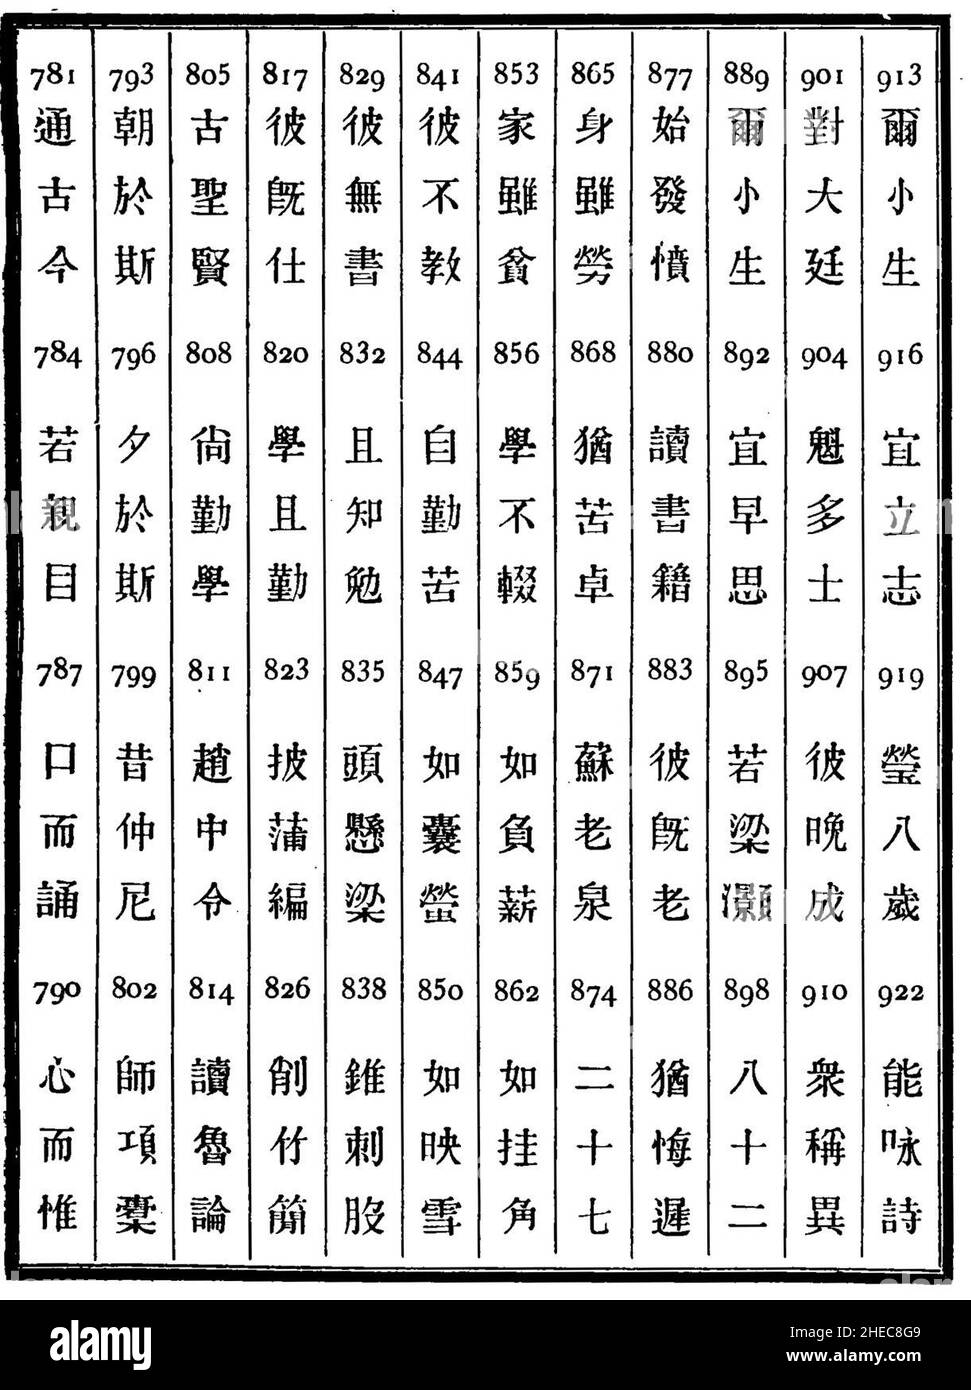 781 通古今 784 若親目 787 口而誦 790 心而惟
793 朝於斯 796 夕於斯 799 昔仲尼 802 師項橐
805 古聖賢 808 尙勤學 811 趙中令 814 讀魯論
817 彼旣仕 820 學且勤 823 披蒲編 826 削竹簡
829 彼無書 832 且知勉 835 頭懸梁 838 錐刺股
841 彼不教 844 自勤苦 847 如囊螢 850 如映雪
853 家雖貧 856 學不輟 859 如負薪 862 如挂角
865 身雖勞 868 猶苦卓 871 蘇老泉 874 二十七
877 始發憤 880 讀書籍 883 彼旣老 886 猶悔遲
889 爾小生 892 宜早思 895 若梁灝 898 八十二
901 對大廷 904 魁多士 907 彼晚成 910 衆稱異
913 爾小生 916 宜立志 919 瑩八歲 922 能咏詩
alamy
Image ID: 2HEC8G9
www.alamy.com